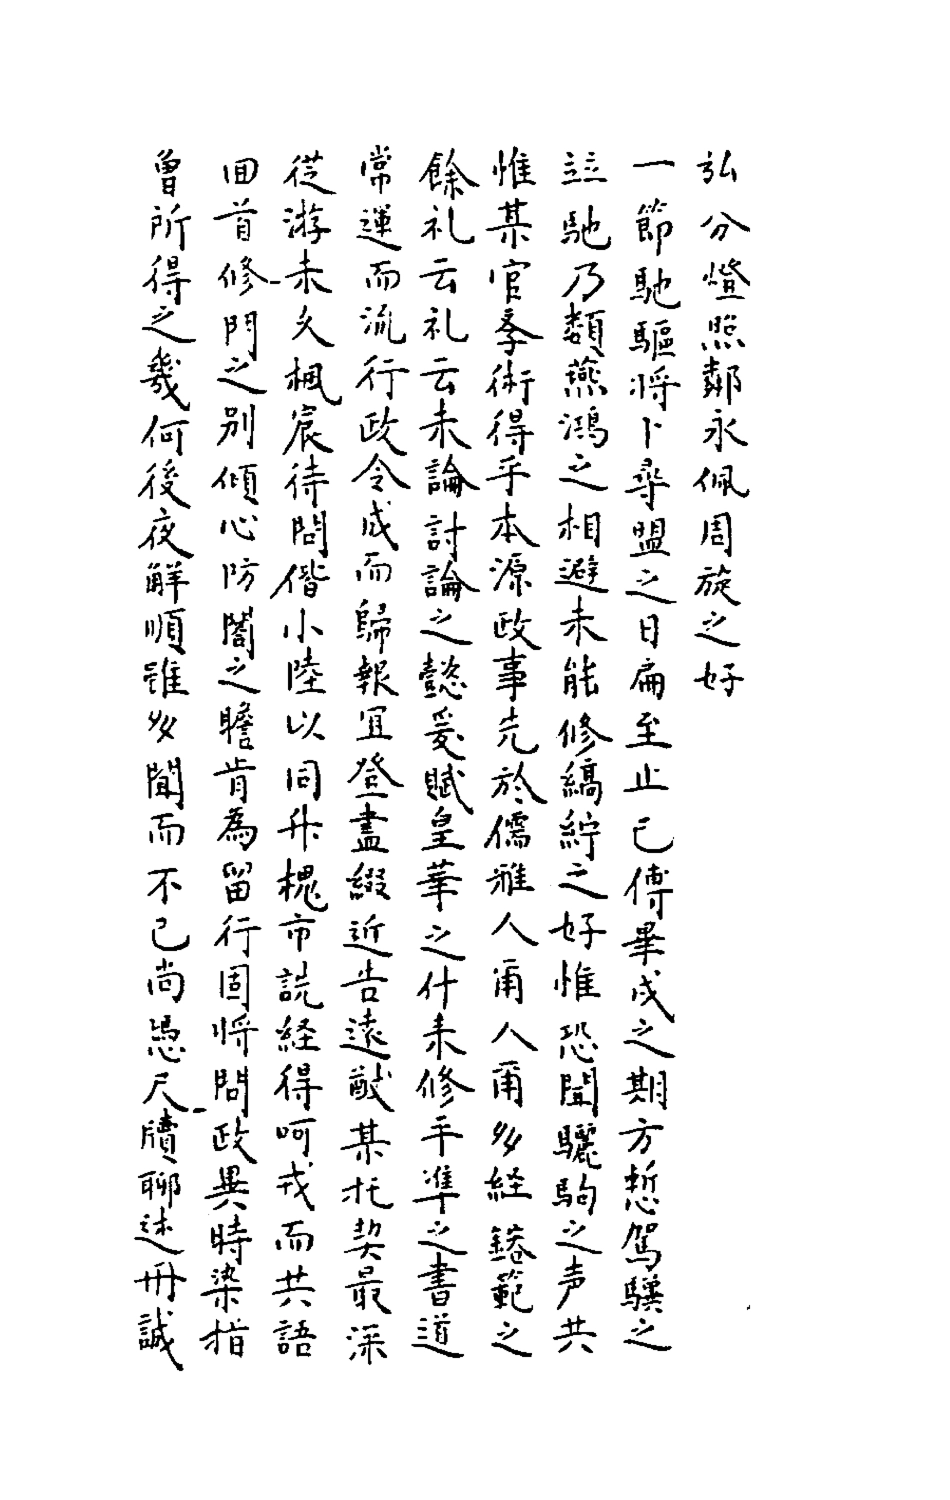 弘分燈照鄰永佩周旋之好
一節馳驅将卜尋盟之日扁至止已傅畢戍之期方慙駕驥之
竝馳乃類燕鴻之相避未能修縞紵之好惟恐聞驪駒之声共
惟某官季術得乎本源政事先於儒雅人甭人甭多経範之
餘礼云礼云未論討論之懿爰賦皇華之什未修平準之書道
常運而流行政令成而歸報冝登盡綴近告遠猷某托契最深
從游未久楓宸待問偕小陸以同升槐市説経得呵戎而共語
囬首修門之别傾心防閣之瞻肯為留行固将問政異時染指
曽所得之幾何後夜解順雖多聞而不已尚憑尺牘聊述冊誠